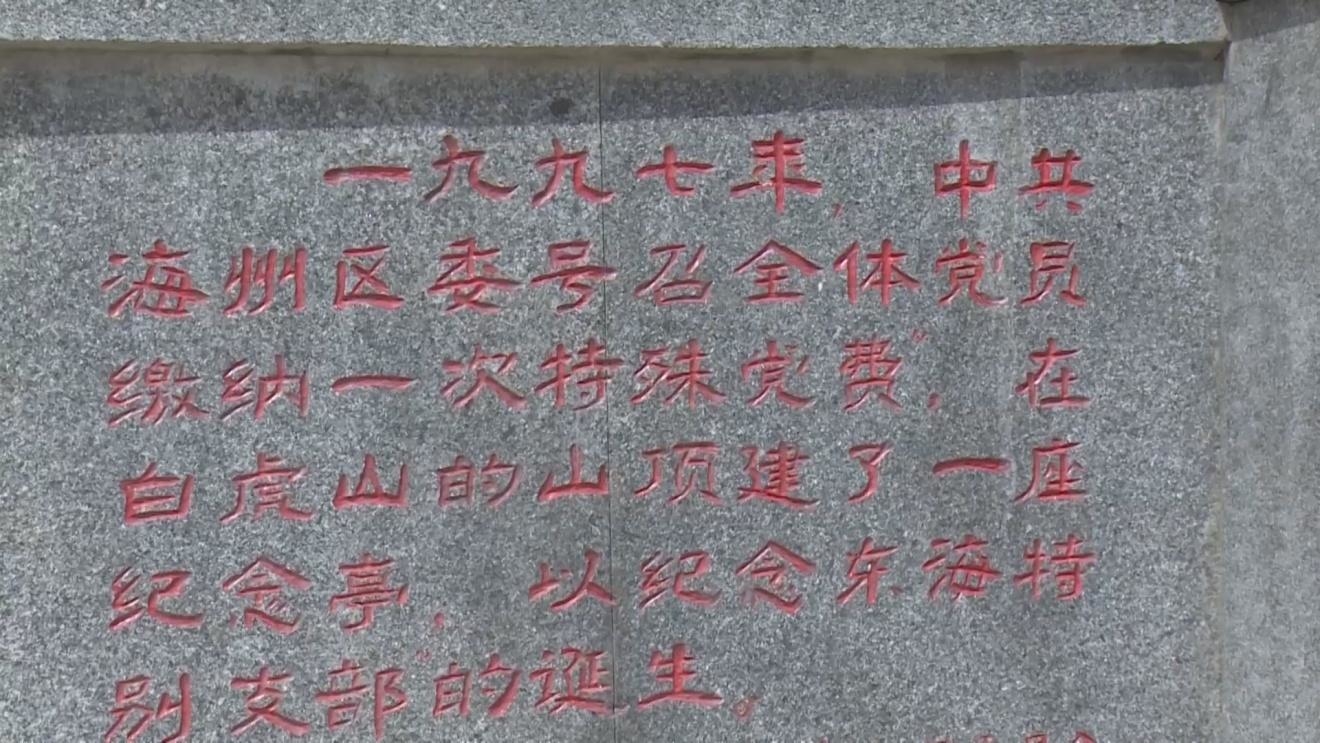 一九九七年,中共
海州区委号召全体党员
缴纳一次特殊党费",在
白虎山的山顶建了一座
纪念亭,以纪念东海特
别支部"的诞生。